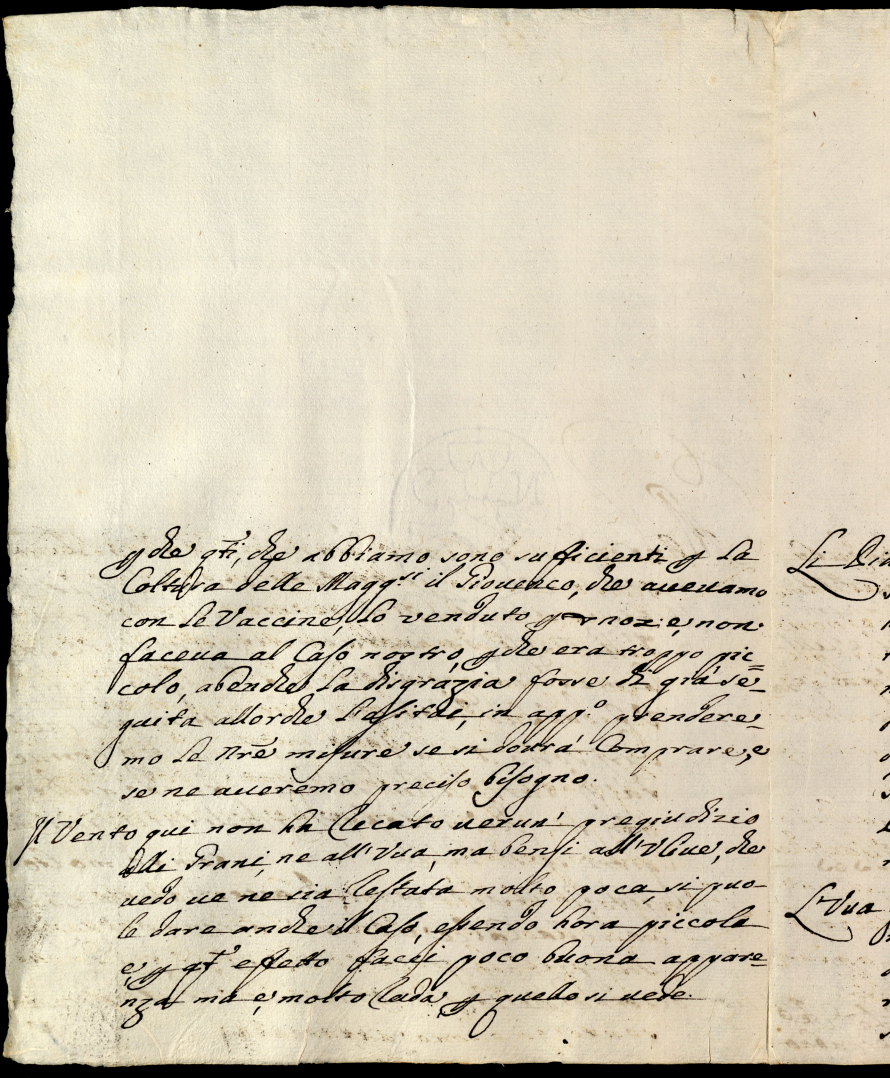 che q̃ti, che abbiamo sono sufficienti La
Coltura delle Magg:si il Giouenco, che aueuamo
con Le Vaccine, Lo venduto e, non
faceua al Caso nostro, che era troppo pic=
colo, abenche La disgrazia fosse di già se=
guita allorche in app:o prendere=
mo Le nr̃e misure se si dourà Comprare, e
se ne aueremo preciso bisogno.
Il Vento qui non ha recato uerun' pregiudizio
alli Grani, ne all'Vua, ma bensi all'Vliue, che
uedo ue ne sia restata molto poca, si puo=
le dare anche il Caso, essendo hora piccola
e, q̃to effetto facci poco buona appare=
nza ma e, molto rada, quello si uede.
Li
L'Vua